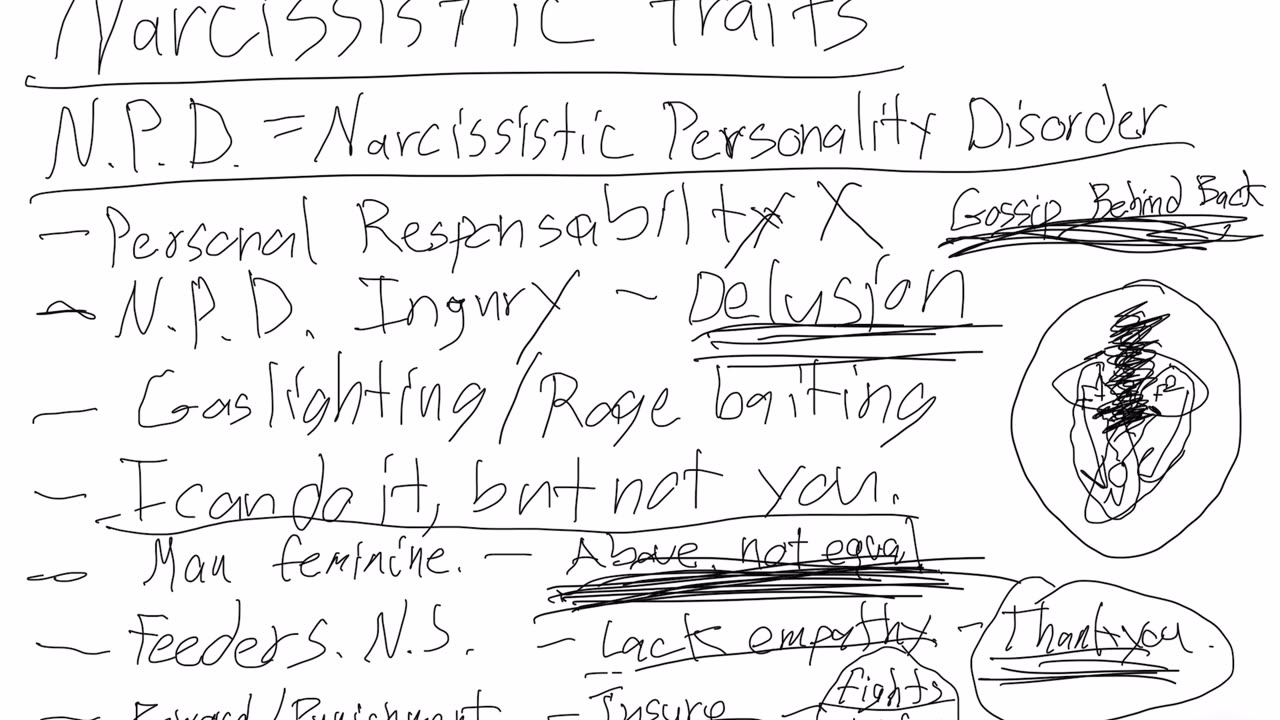 Narcissistic Traits
N.P.D. = Narcissistic Personality Disorder
- Personal Responsabilty X
Gossip Behind Back
- N.P.D. Ingury - Delusion
- Gaslighting / Rage baiting
- I can do it, but not you.
- Man feminine. - Above, not equal
- Feeders. N.S. - Lack empathy - Thank you.
- Reward / Punishment - Insure - fights